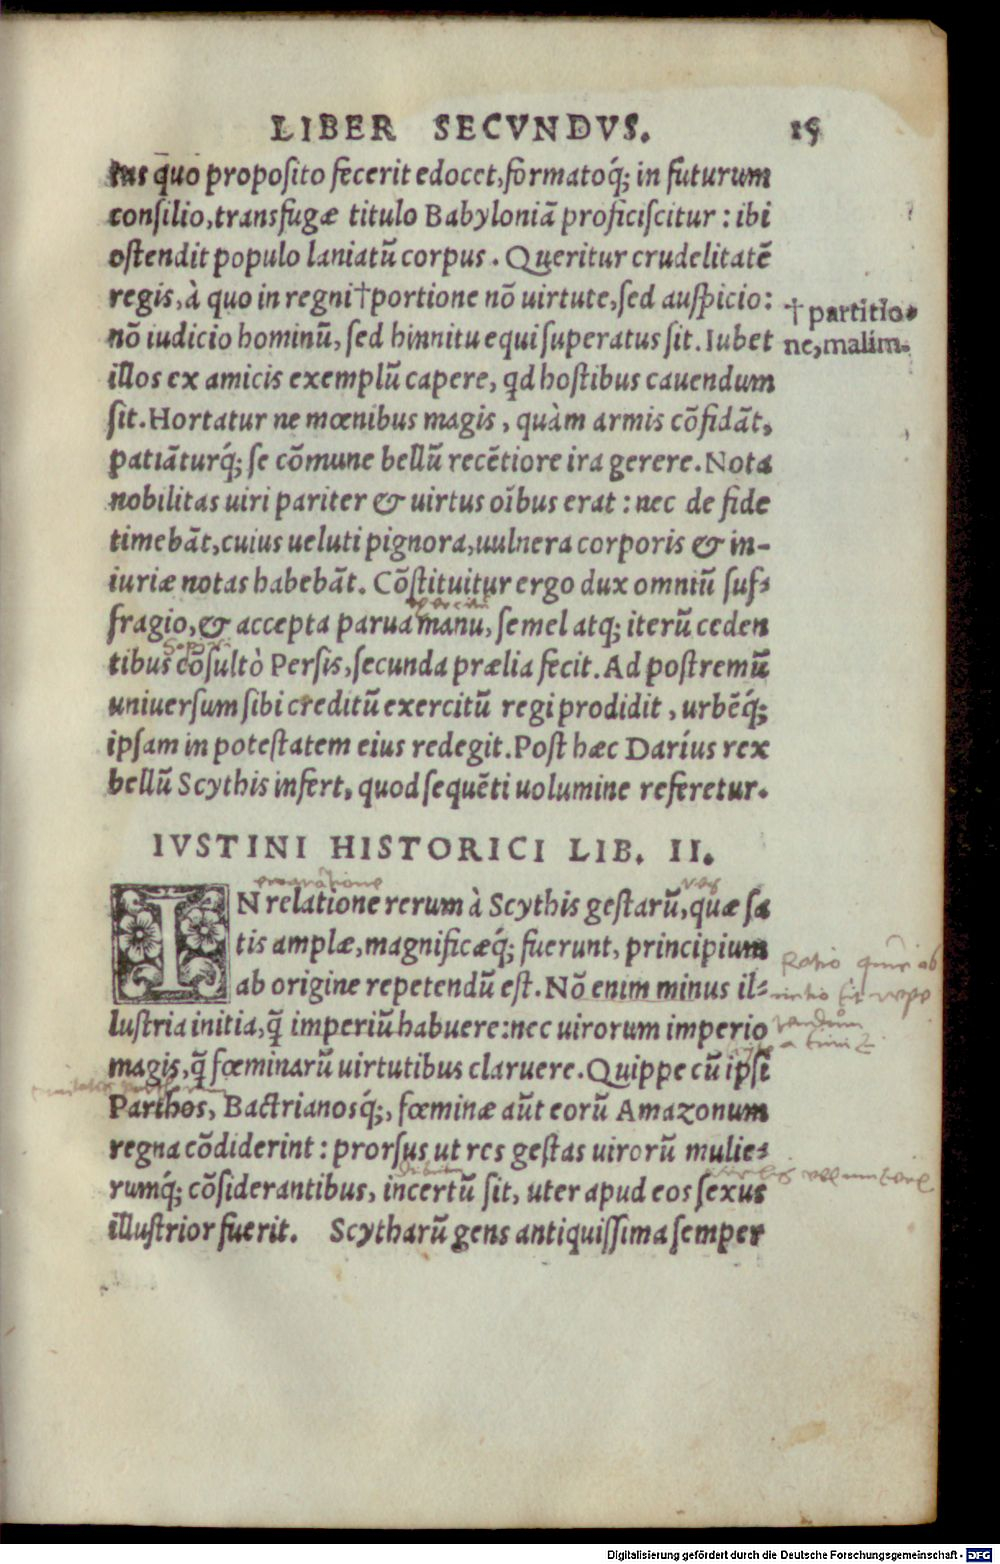 LIBER SECVNDVS. 15
tus quo proposito fecerit edocet, formatoq́; in futurum
consilio, transfugæ titulo Babyloniã proficiscitur: ibi
ostendit populo laniatũ corpus. Queritur crudelitatẽ
regis, à quo in regni†portione nõ uirtute, sed auspicio:
† partitio-
nõ iudicio hominũ, sed hinnitu equi superatus sit. Iubet
ne, malim.
illos ex amicis exemplũ capere, qd hostibus cauendum
sit. Hortatur ne mœnibus magis, quàm armis cõfidãt,
patiãturq́; se cõmune bellũ recẽtiore ira gerere. Nota
nobilitas uiri pariter & uirtus oĩbus erat: nec de fide
timebãt, cuius ueluti pignora, uulnera corporis & in-
iuriæ notas habebãt. Cõstituitur ergo dux omniũ suf-
fragio, & accepta parua manu, semel atq; iterũ ceden
tibus cõsultò Persis, secunda prælia fecit. Ad postremũ
uniuersum sibi creditũ exercitũ regi prodidit, urbẽq́;
ipsam in potestatem eius redegit. Post hæc Daríus rex
bellũ Scythis infert, quod sequẽti uolumine referetur.
IVSTINI HISTORICI LIB. II.
IN relatione rerum à Scythis gestarũ, quæ sa
tis amplæ, magnificæq́; fuerunt, principium
ab origine repetendũ est. Nõ enim minus il-
lustria initia, q̃ imperiũ habuere: nec uirorum imperio
magis, q̃ fœminarũ uirtutibus claruere. Quippe cũ ipsi
Parthos, Bactrianosq́;, fœminæ aũt eorũ Amazonum
regna cõdiderint: prorsus ut res gestas uirorũ mulie-
rumq́; cõsiderantibus, incertũ sit, uter apud eos sexus
illustrior fuerit. Scytharũ gens antiquissima semper
Digitalisierung gefördert durch die Deutsche Forschungsgemeinschaft - DFG